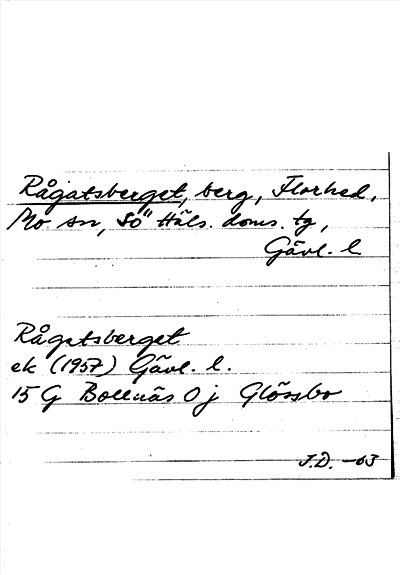 Rågatsberget, berg, Florhed,
Mo sn, Sö Häls. doms. tg,
Gävl. l
Rågatsberget
ek (1957) Gävl. l.
15 G Bollnäs 0 j Glössbo
J.D. -63